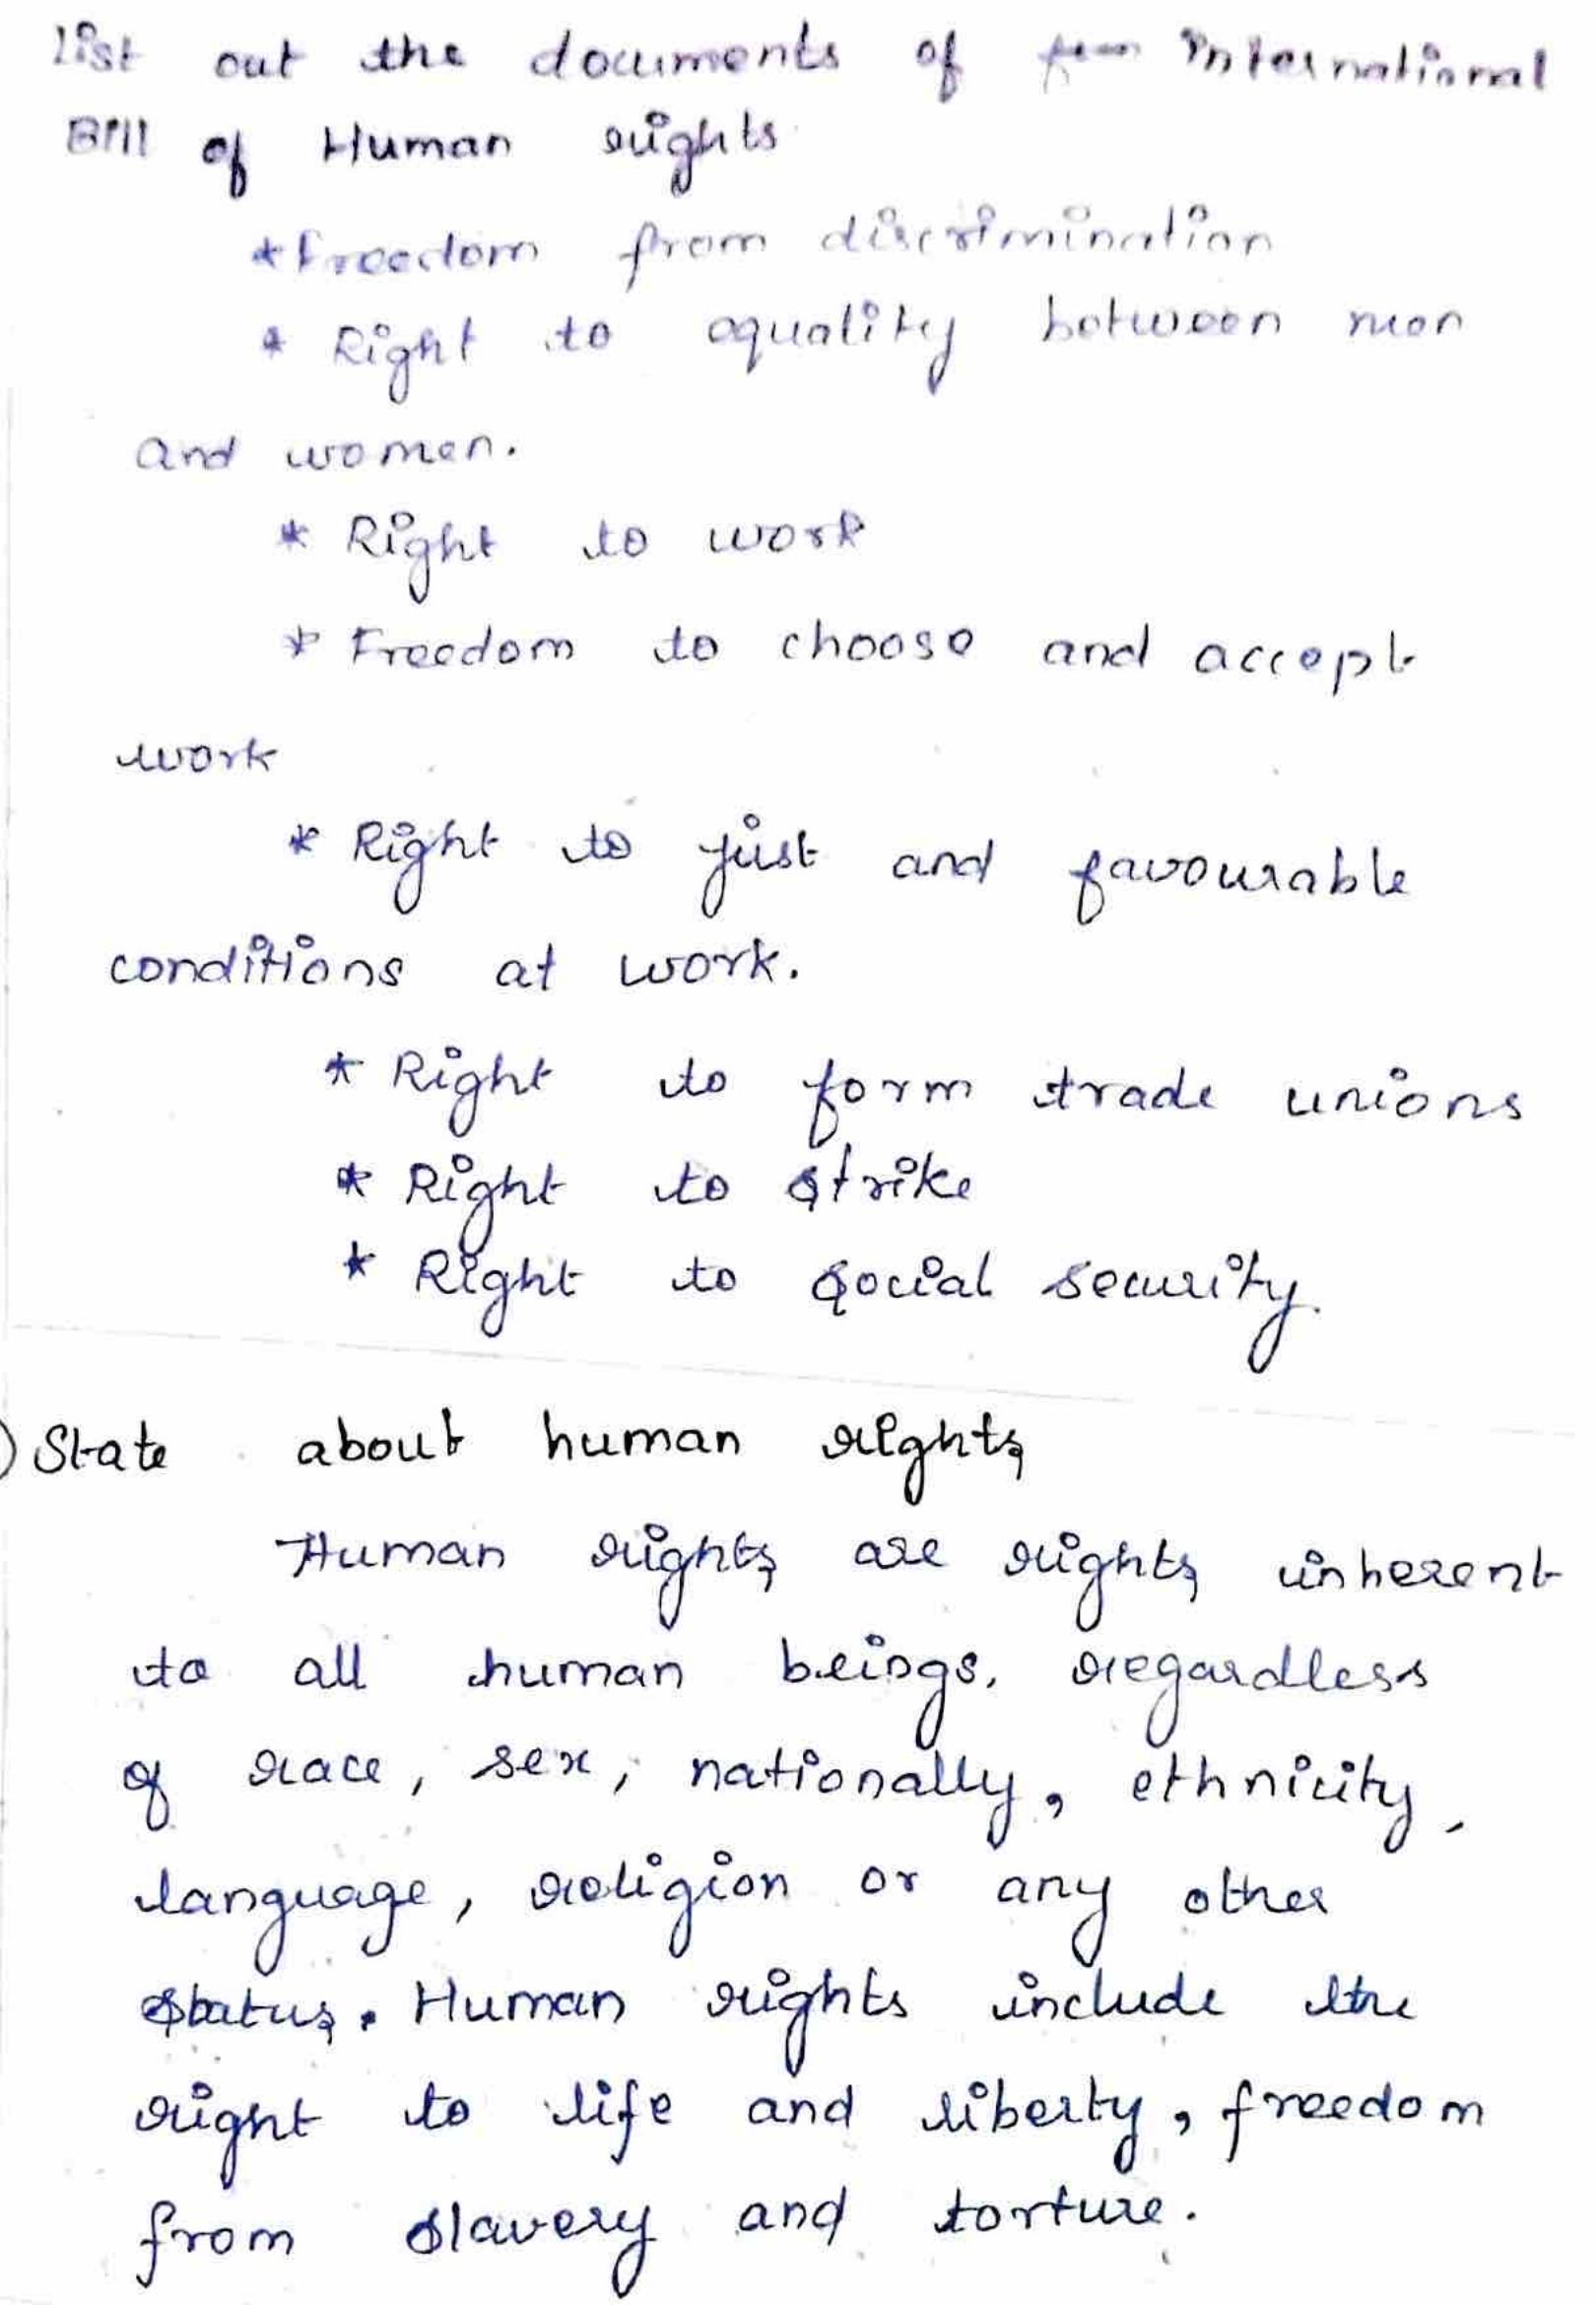 List out the documents of International
Bill of Human rights
* Freedom from discrimination
* Right to equality between men
and women.
* Right to work
* Freedom to choose and accept
work
* Right to just and favourable
conditions at work.
* Right to form trade unions
* Right to strike
* Right to social security.
) State about human rights
Human rights are rights inherent
to all human beings, regardless
of race, sex, nationally, ethnicity,
language, religion or any other
status. Human rights include the
right to life and liberty, freedom
from slavery and torture.